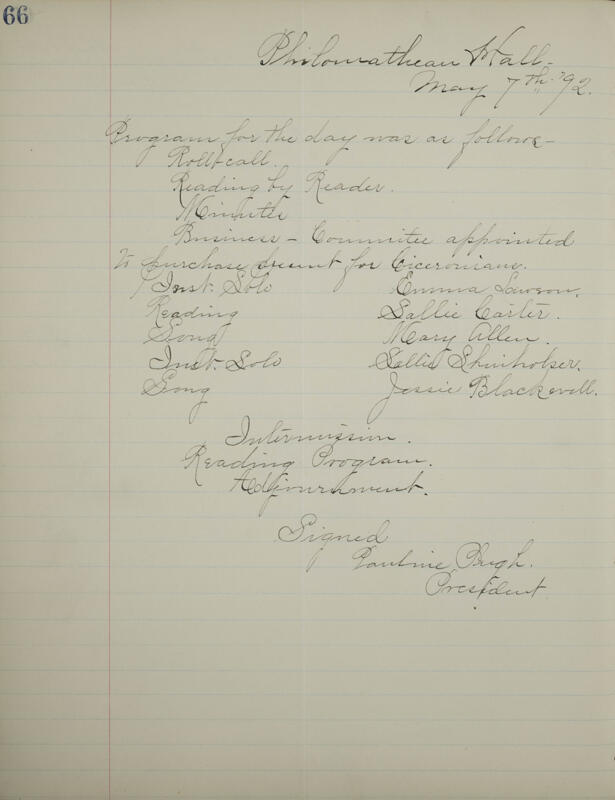 66
Philomathean Hall-
May 7th '92.
Program for the day was as follows-
Roll-call.
Reading by Reader.
Minutes
Business - Committee appointed
to purchase present for Ciceronians.
Inst. Solo Emma Lawson.
Reading Sallie Carter.
Song Mary Allen.
Inst. Solo Sallie Shinholser.
Song Jessie Blackwell.
Intermission.
Reading Program.
Adjournment.
Signed
Pauline Pugh.
President